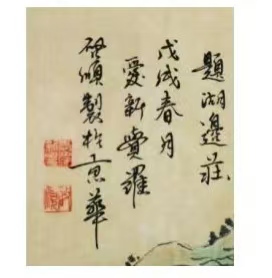 題湖邊莊
戊戌春月
愛新覺羅
啓傾製於京華